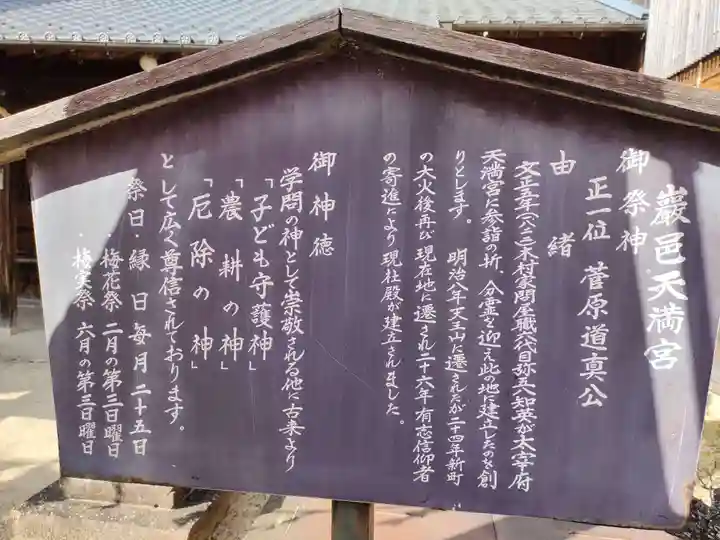 巖邑天満宮
御祭神
正一位 菅原道真公
由緒
文正五年(一八二二)木村家問屋職六代目弥五八知英が太宰府
天満宮に参詣の折、分霊を迎え此の地に建立したのを創
りとします。 明治八年天王山に遷されたが二十四年新町
の大火後再び現在地に遷され二十六年有志信仰者
の寄進により現社殿が建立されました。
御神徳
学問の神として崇敬される他に古来より
「子ども守護神」
「農耕の神」
「厄除の神」
として広く尊信されております。
祭日 縁日 毎月二十五日
・梅花祭 二月の第三日曜日
・梅実祭 六月の第三日曜日